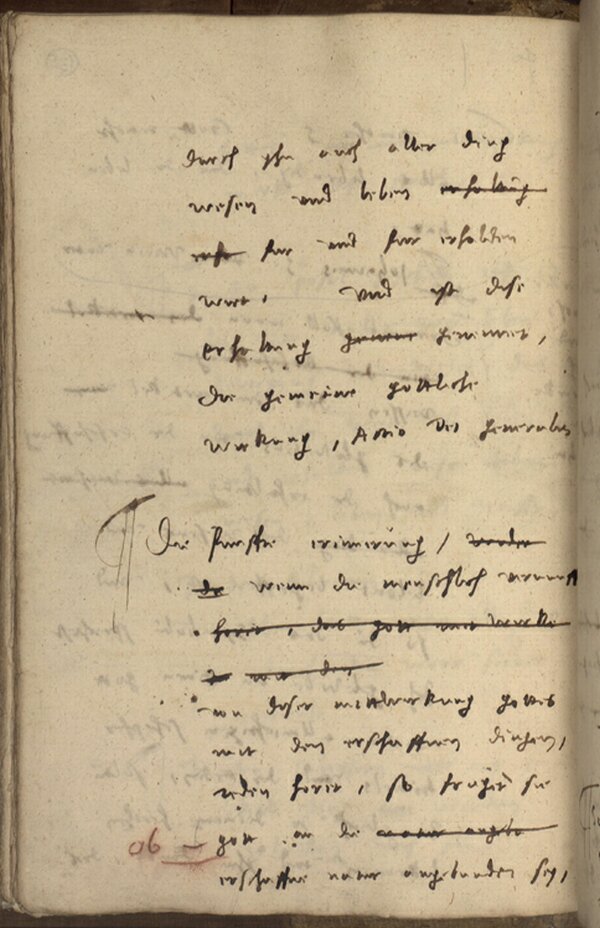 durch yhn auch aller ding
wesen vnd leben erhaltung
fur vnd fur erhalten
wirt. Vnd ist dise
erhaltung genennet,
die gemeine gottliche
wirkung, Actio Dei generalis
Die funffte erinnerung /
wenn die menschlich vernunfft
horet, das gott mit
von diser mittwirkung gottes
mit den erschaffnen dingen,
reden horet, so fraget sie
ob
gott an die natur
erschaffne natur angebunden sey,